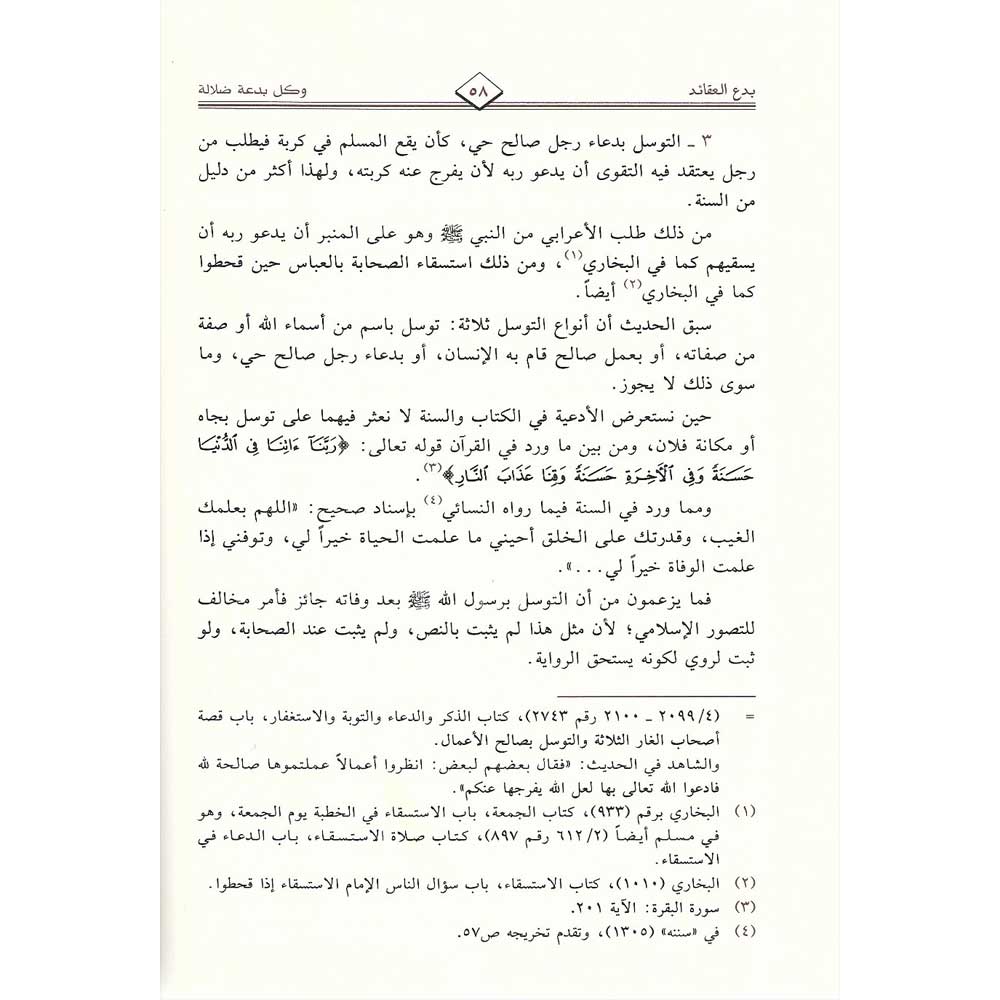 بدع العقائد ٥٨ وكل بدعة ضلالة
٣ ـ التوسل بدعاء رجل صالح حي، كأن يقع المسلم في كربة فيطلب من
رجل يعتقد فيه التقوى أن يدعو ربه لأن يفرج عنه كربته، ولهذا أكثر من دليل
من السنة.
من ذلك طلب الأعرابي من النبي ﷺ وهو على المنبر أن يدعو ربه أن
يسقيهم كما في البخاري(١)، ومن ذلك استسقاء الصحابة بالعباس حين قحطوا
كما في البخاري(٢) أيضاً.
سبق الحديث أن أنواع التوسل ثلاثة: توسل باسم من أسماء الله أو صفة
من صفاته، أو بعمل صالح قام به الإنسان، أو بدعاء رجل صالح حي، وما
سوى ذلك لا يجوز.
حين نستعرض الأدعية في الكتاب والسنة لا نعثر فيهما على توسل بجاه
أو مكانة فلان، ومن بين ما ورد في القرآن قوله تعالى: ﴿رَبَّنَآ ءَاتِنَا فِى ٱلدُّنْيَا
حَسَنَةً وَفِى ٱلْأَخِرَةِ حَسَنَةً وَقِنَا عَذَابَ ٱلنَّارِ﴾(٣).
ومما ورد في السنة فيما رواه النسائي(٤) بإسناد صحيح: «اللهم بعلمك
الغيب، وقدرتك على الخلق أحيني ما علمت الحياة خيراً لي، وتوفني إذا
علمت الوفاة خيراً لي...».
فما يزعمون من أن التوسل برسول الله ﷺ بعد وفاته جائز فأمر مخالف
للتصور الإسلامي؛ لأن مثل هذا لم يثبت بالنص، ولم يثبت عند الصحابة، ولو
ثبت لروي لكونه يستحق الرواية.
= (٤/ ٢٠٩٩ ـ ٢١٠٠ رقم ٢٧٤٣)، كتاب الذكر والدعاء والتوبة والاستغفار، باب قصة
أصحاب الغار الثلاثة والتوسل بصالح الأعمال.
والشاهد في الحديث: «فقال بعضهم لبعض: انظروا أعمالاً عملتموها صالحة لله
فادعوا الله تعالى بها لعل الله يفرجها عنكم».
(١) البخاري برقم (٩٣٣)، كتاب الجمعة، باب الاستسقاء في الخطبة يوم الجمعة، وهو
في مسلم أيضاً (٢/ ٦١٢ رقم ٨٩٧)، كتاب صلاة الاستسقاء، باب الدعاء في
الاستسقاء.
(٢) البخاري (١٠١٠)، كتاب الاستسقاء، باب سؤال الناس الإمام الاستسقاء إذا قحطوا.
(٣) سورة البقرة: الآية ٢٠١.
(٤) في «سننه» (١٣٠٥)، وتقدم تخريجه ص٥٧.